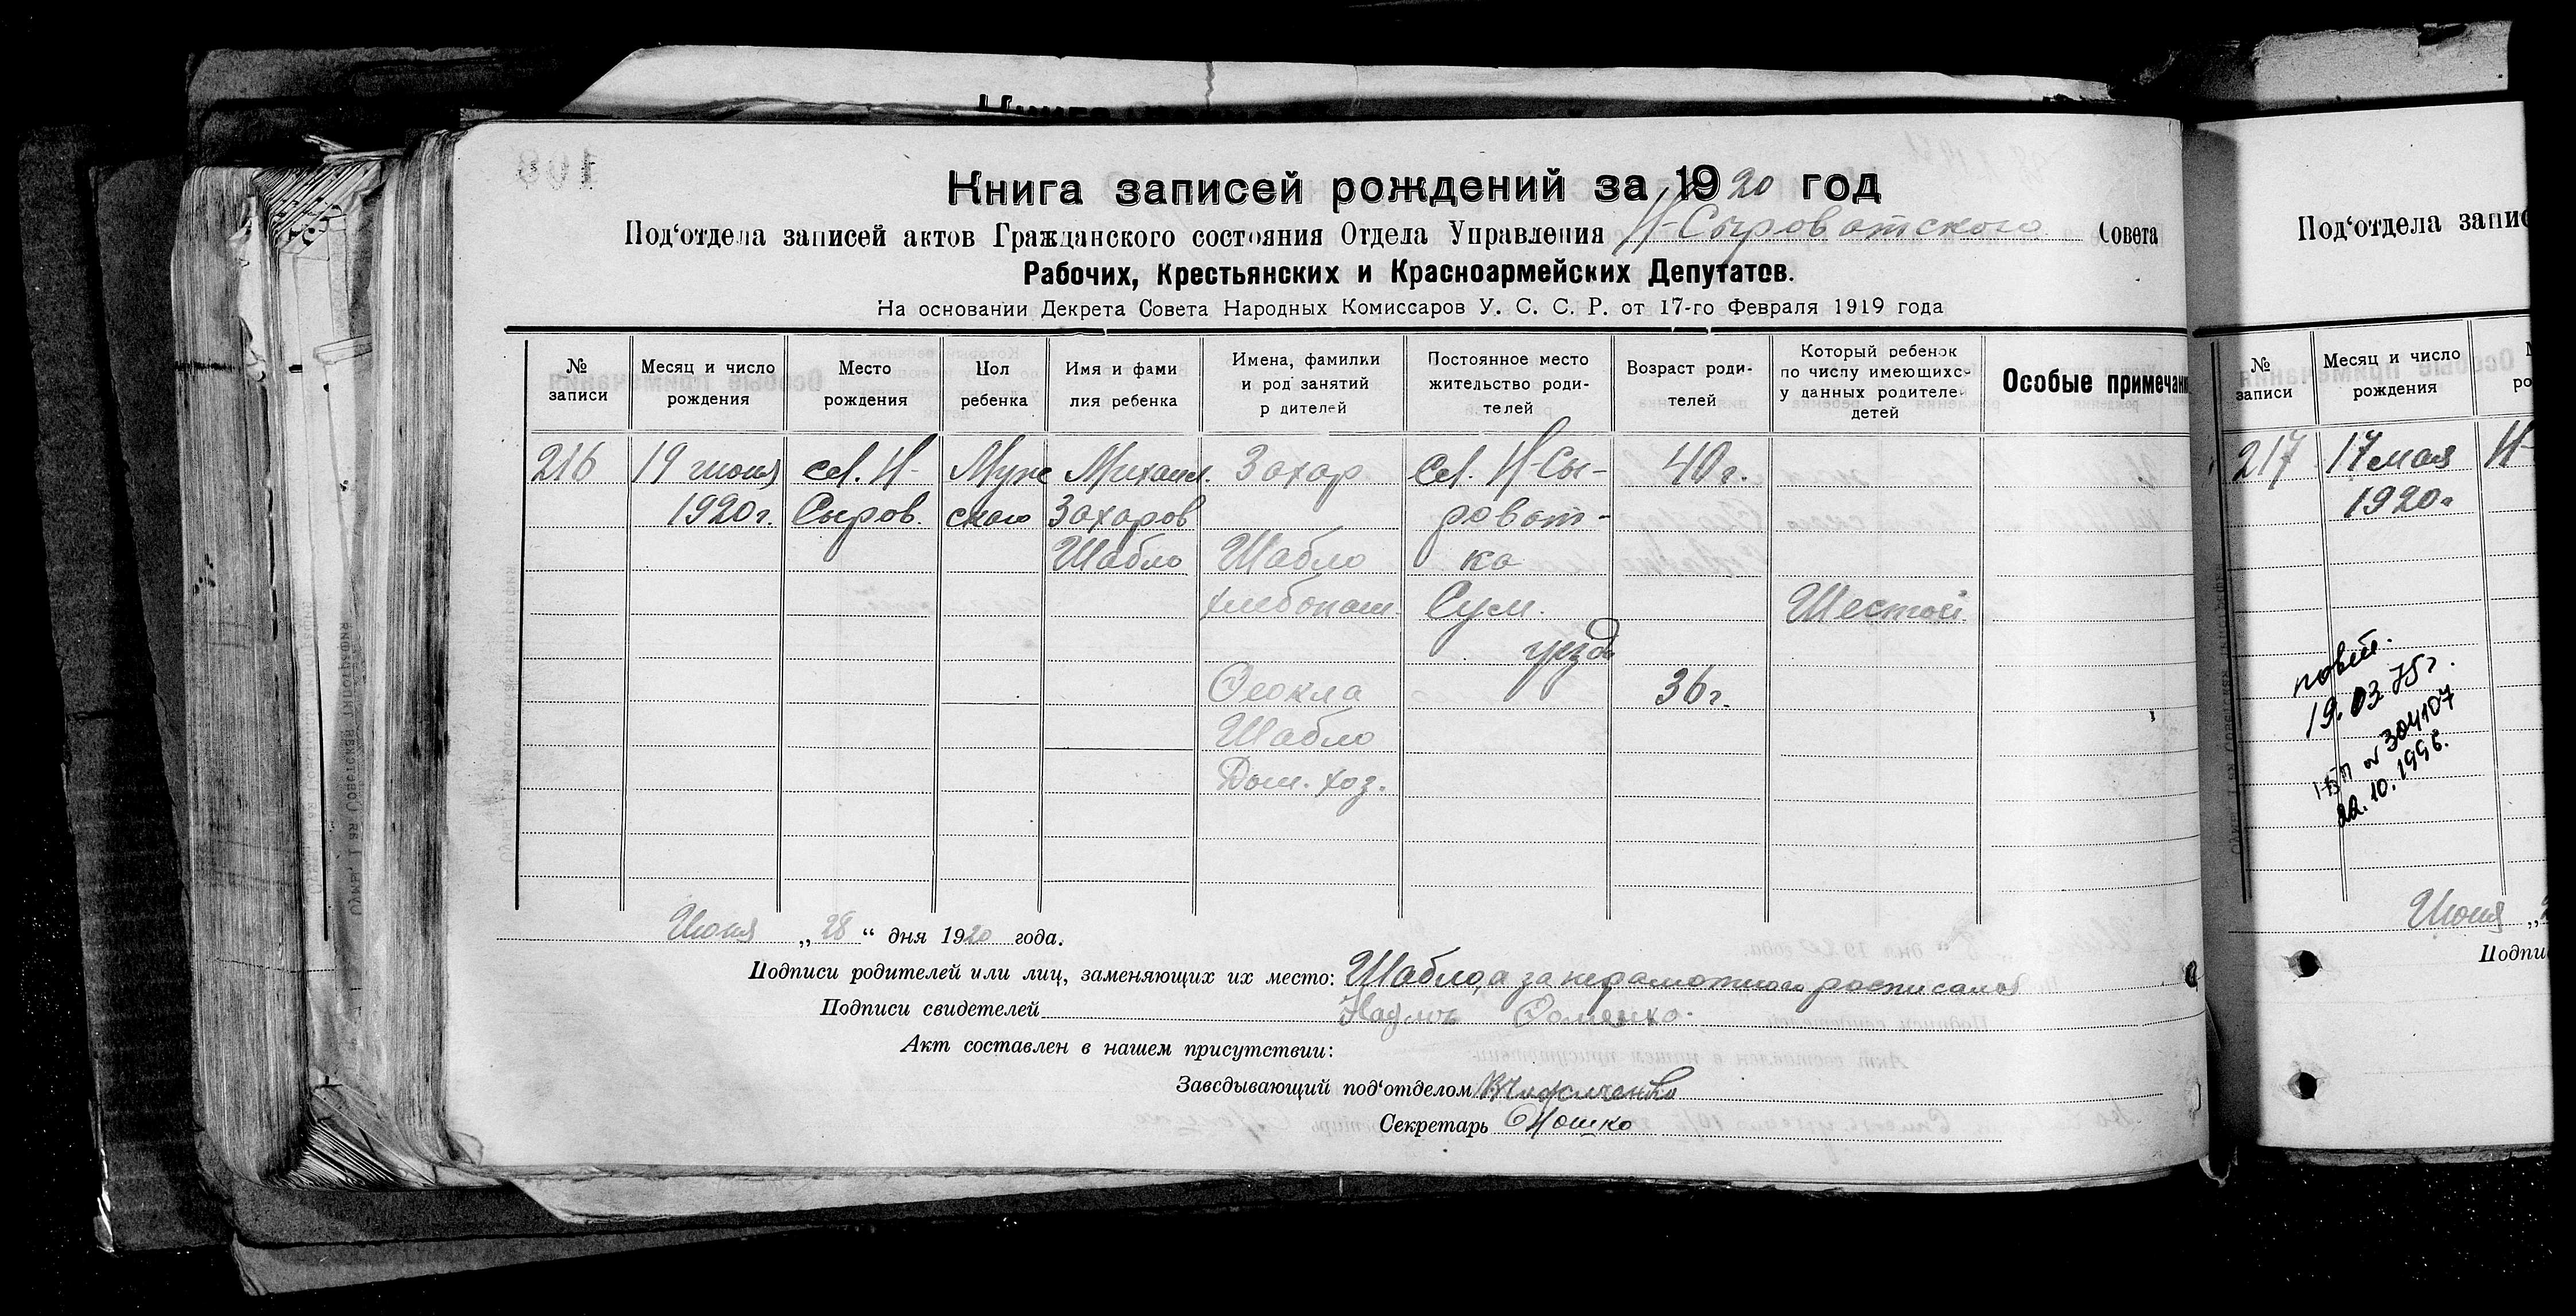 Книга записей рождений за 1920 год
Под‘отдела записей актов Гражданского состояния Отдела Управления Н-Сыроватского Совета
Рабочих, Крестьянских и Красноармейских Депутатов.
На основании Декрета Совета Народных Комиссаров У. С. С. Р. от 17-го Февраля 1919 года
№ записи
Месяц и число рождения
Место рождения
Пол ребенка
Имя и фами лия ребенка
Имена, фамилии и род занятий родителей
Постоянное место жительство роди- телей
Возраст роди- телей
Который ребенок по числу имеющихся у данных родителей детей
Особые примечани
216
19 июня
1920 г.
сел. Н-
Сыров.
Муж
ского
Михаил.
Захаров
Шабло
Захар
Шабло
хлебопаш.
Феокла
Шабло
Дом. хоз.
Сел. Н-Сы-
роват-
ка
Сум.
уезда
40 г.
36 г.
Шестой
Июня „28“ дня 1920 года.
Подписи родителей или лиц, заменяющих их место: Шабло, а за неграмотного росписался
Подписи свидетелей
Акт составлен в нашем присутствии:
Заведывающий под‘отделом
Секретарь
Под‘отдела запис
№ записи
Месяц и число рождения
217
17 мая
1920 г.
Н-
повт.
19.03.75 г.
№ 304107
22.10.1996.
Июня „
Подпи